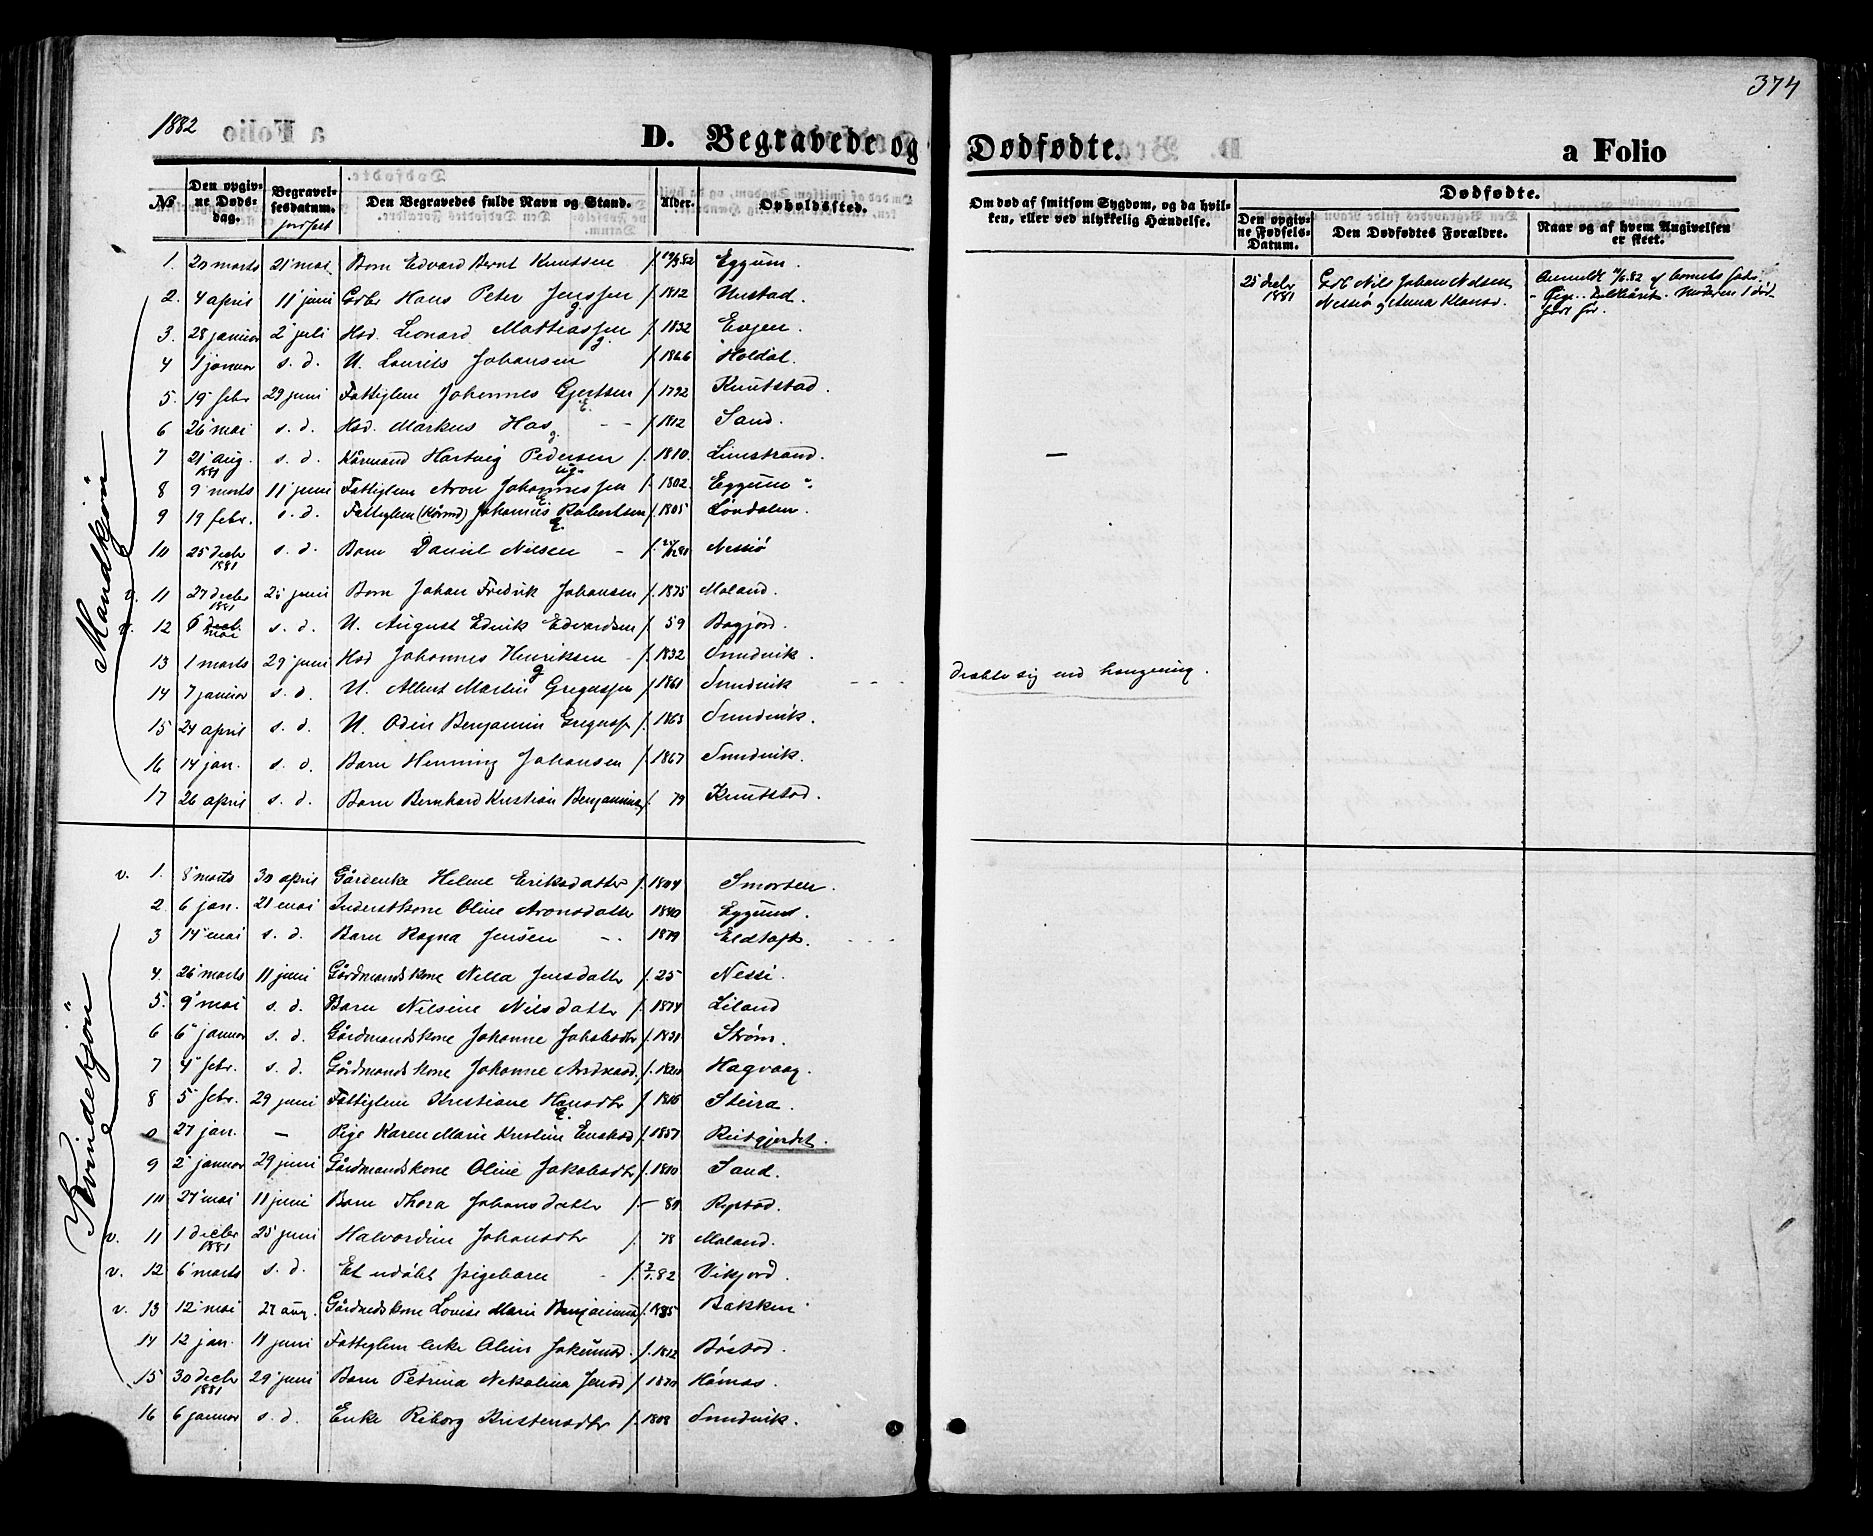 1882
374
D. Begravede og Dødfødte.
a Folio
№ Den opgivne Dødsdag. Begravelsesdatum. jordfæst Den Begravedes fulde Navn og Stand. Alder. Opholdssted.
Om død af smitsom Sygdom, og da hvilken, eller ved ulykkelig Hændelse.
Dødfødte.
Den opgivne Fødsels-Datum. Den Dødfødtes Forældre. Naar og af hvem Angivelsen er skeet.
Mandkjön
1. 20 marts 21 mai Barn Edvard Bernt Knutsen Eggum.
2. 4 april 11 juni Gdbr Hans Peter Jenssen f. 1812 Unstad.
3. 28 januar 2 juli Hsd. Leonard Mathiassen f. 1832 Evjen.
4 1 januar s. d. U. Laurits Johansen f. 1866 Holdal.
5. 19 febr 29 juni Fattiglem Johannes Gjertsen f. 1792 Knutstad.
6 26 mai s. d. Hsd. Markus Has f. 1812 Sand.
7 21 aug. 1881 s. d. Kårmand Hartvig Pedersen f. 1810. Limstrand.
8 9 marts 11 juni Fattiglem Aron Johannessen f. 1802. Eggum
9 19 febr. s. d. Fattiglem (Kårmd) Johannes Robertsen f. 1805 Løvdalen.
10 25 decbr 1881 s. d. Barn Daniel Nilsen Nessiö
v. 11 27 decbr 1881 25 juni Barn Johan Fredrik Johansen f. 1875 Moland.
v. 12 6 mai s. d. U. August Edvardsen f. 59 Bogjord.
13 1 marts 29 juni Hsd Johannes Henriksen f. 1832 Sundvik.
14 7 januar s. d. U. Albert Martin Gregussen f. 1861 Sundvik
15 24 april s. d. U. Odin Benjamin Greguss f. 1863 Sundvik.
16 14 jan. s. d. Barn Henning Johansen f. 1867 Sundvik.
17 26 april s. d. Barn Bernhard Kristian f. 79 Knutstad.
dræbte sig ved hængning.
25 decbr 1881 Nils Johan Nilsen
Nessiö og Anna Klausd.
Anmeldt af barnets fader
Kvindekjön
v. 1. 8 marts 30 april Gårdenke Helene Eriksdatter f. 1804 Smorten.
2. 6 jan. 21 mai Inderstkone Oline Aronsdatter 1840 Eggum.
3 14 mai s. d. Barn Ragna Jensen 1879 Eldtoft.
4 26 marts 11 juni Gårdmandskone Nella Jensdatter f. 25 Nessi.
5. 9 mai s. d. Barn Nilsine Nilsdatter f. 1874 Liland
6 6 januar s. d. Gårdmandskone Johanne Jakobsdtr f. 1831 Strøm.
7 4 febr. s. d. Gårdmandskone Johanne Andreasd. Hagvaag.
8 5 febr. 29 juni Fattiglem Kristiane Hansdtr f. 1816 Steira.
0 27 jan. — Pige Karen Marie Kristine f. 1857 Reitgjerdet.
9 2 januar 29 juni Gårdmandskone Oline Jakobsdtr f. 1810 Sand.
10 27 mai 11 juni Barn Thora Johansdatter f. Repstad.
v. 11 1 decbr 1881 25 juni Halvardine Johansdtr f. 78 Moland.
v. 12 6 marts s. d. Et udöbt pigebarn f. 82 Vikjord.
v. 13 12 mai 27 aug. Gårdmdskone Lovise Marie Bakken
14 12 jan. 11 juni Fattiglem enke Oline f. 1812 Böstad.
15 30 decbr 1881 29 juni Barn Petrina Nikolina Jensd f. 1870
16 6 januar s. d. Enke Reborg Kristensdtr f. 1808 Sundvik.